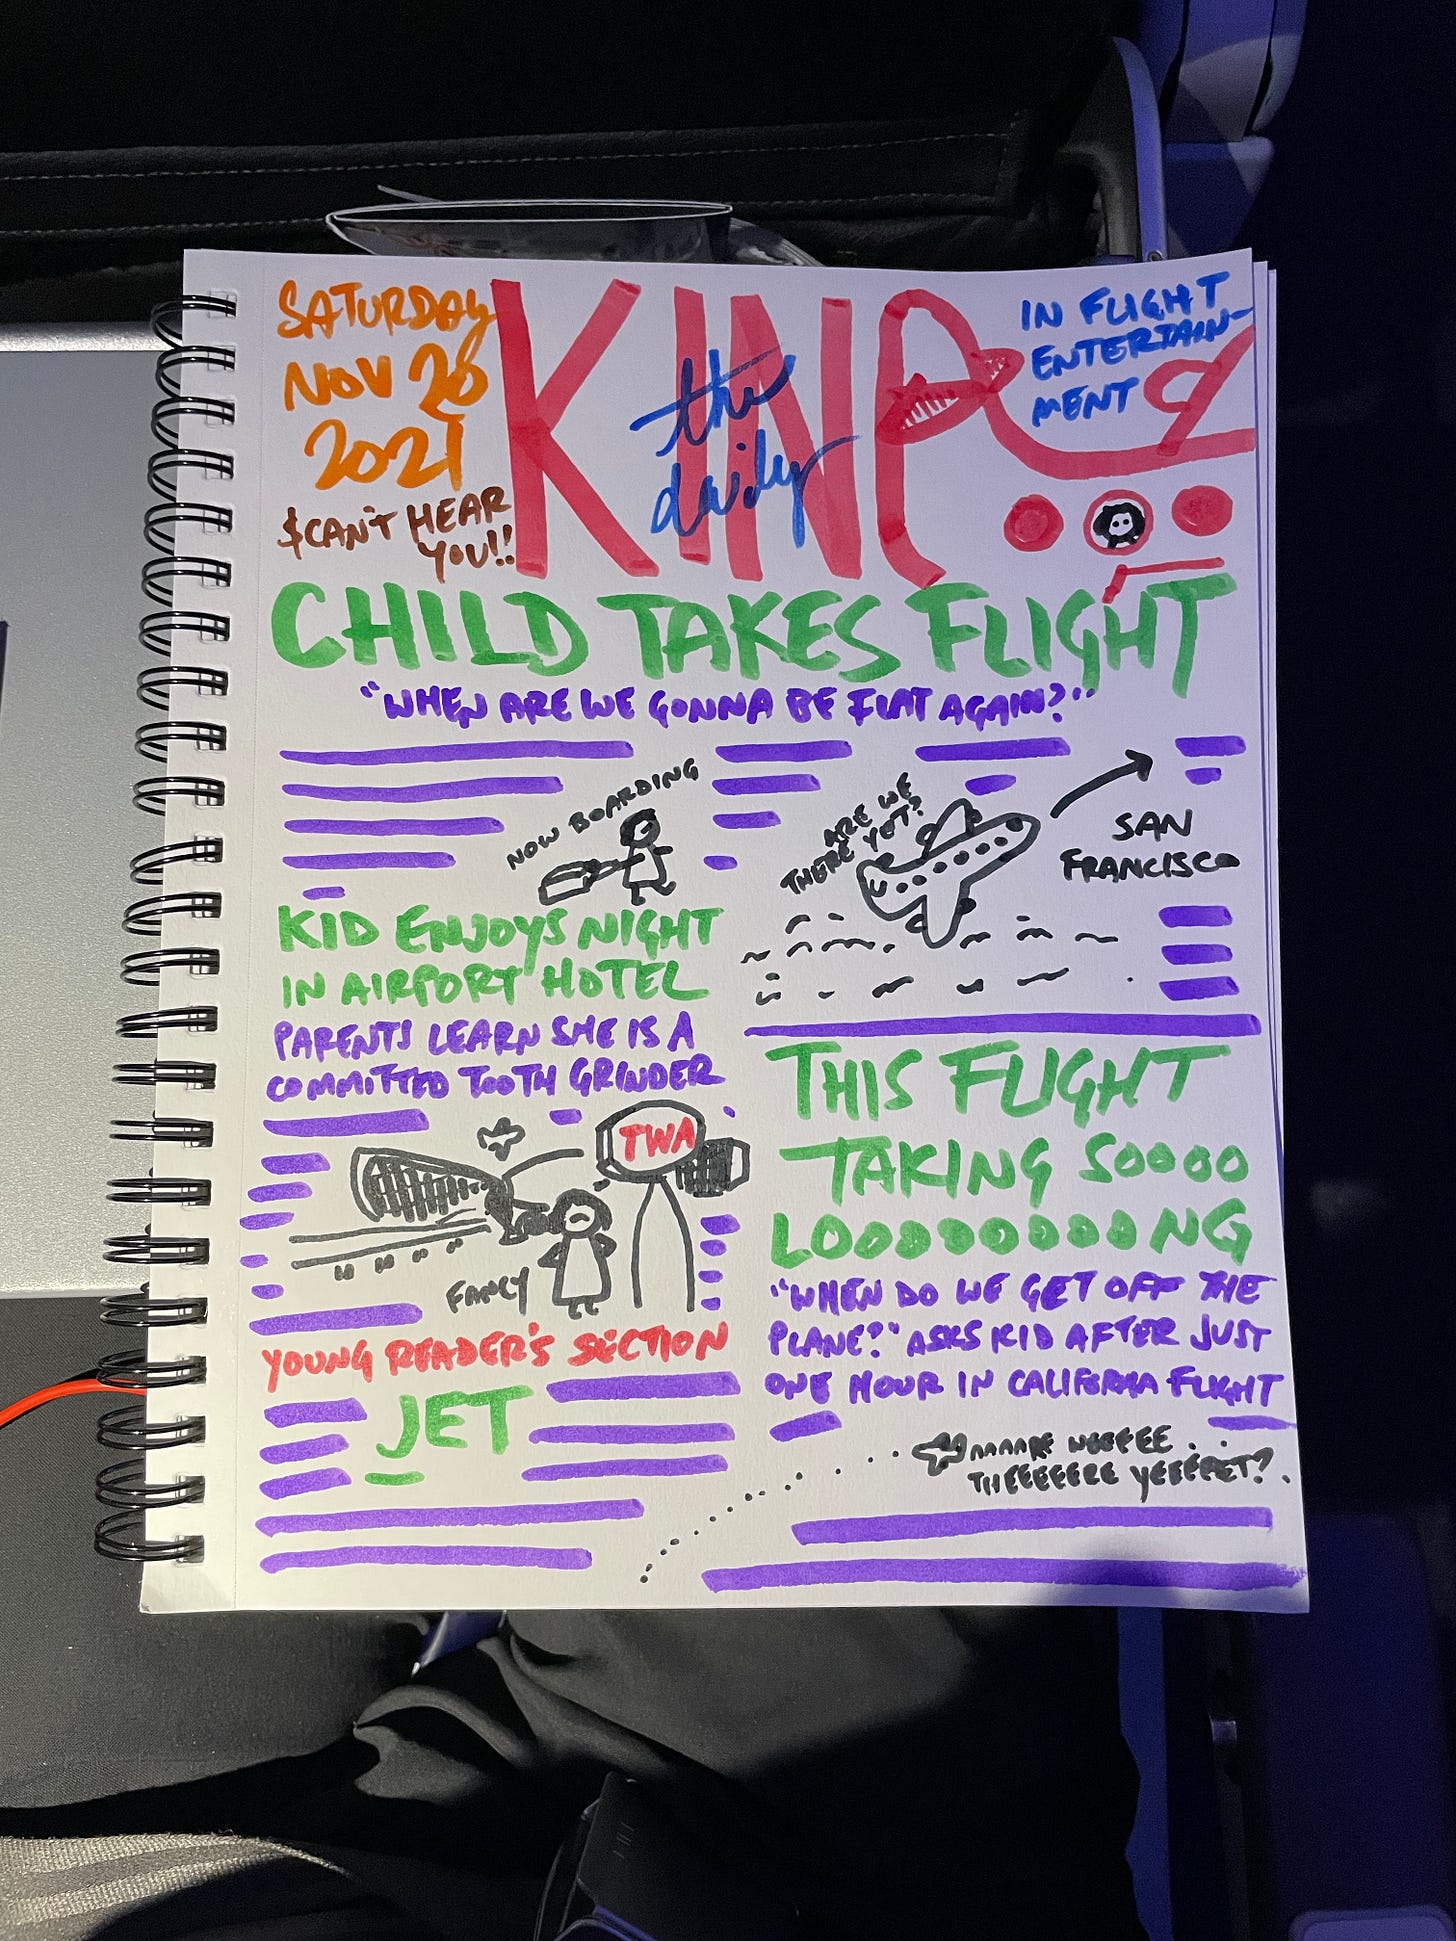 SATURDAY
NOV 26
2021
$CAN'T HEAR
YOU!!
the
daily
KINE
IN FLIGHT
ENTERTAIN-
MENT
CHILD TAKES FLIGHT
"WHEN ARE WE GONNA BE FLAT AGAIN?"
NOW BOARDING
ARE WE
THERE YET?
SAN
FRANCISCO
KID ENJOYS NIGHT
IN AIRPORT HOTEL
PARENTS LEARN SHE IS A
COMMITTED TOOTH GRINDER
TWA
FANCY
YOUNG READER'S SECTION
JET
THIS FLIGHT
TAKING SOOOO
LOOOOOOOOONG
"WHEN DO WE GET OFF THE
PLANE?" ASKS KID AFTER JUST
ONE HOUR IN CALIFORNIA FLIGHT
AAAARE WEEEEE
THEEEEERE YEEEEEET?